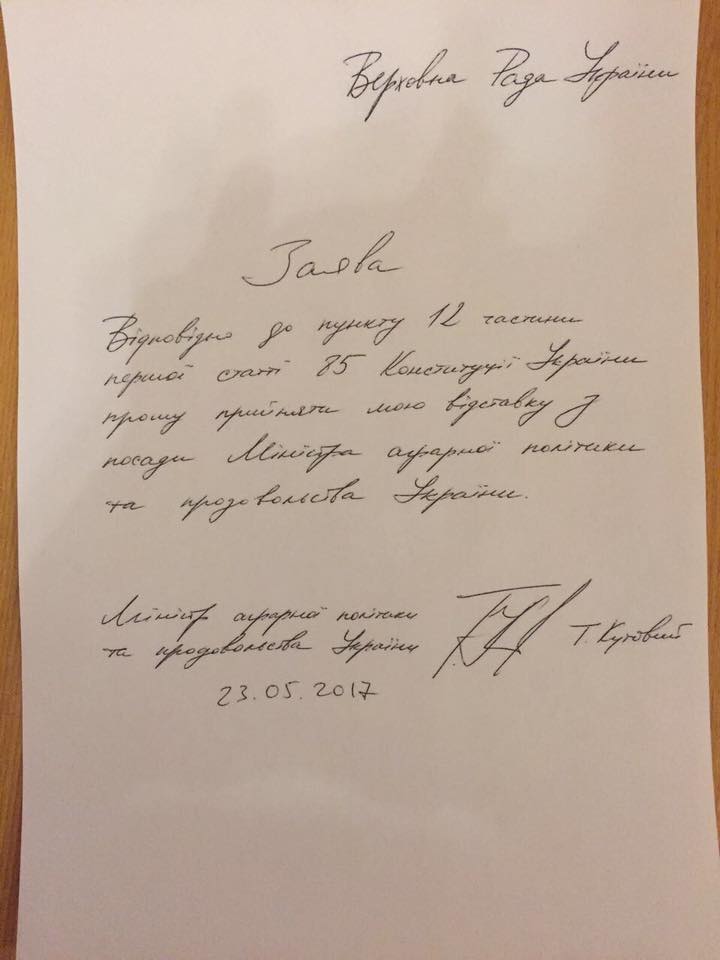 Верховна Рада України
Заява
Відповідно до пункту 12 частини
першої статті 85 Конституції України
прошу прийняти мою відставку з
посади Міністра аграрної політики
та продовольства України.
Міністр аграрної політики
та продовольства України
Т. Кутовий
23.05.2017